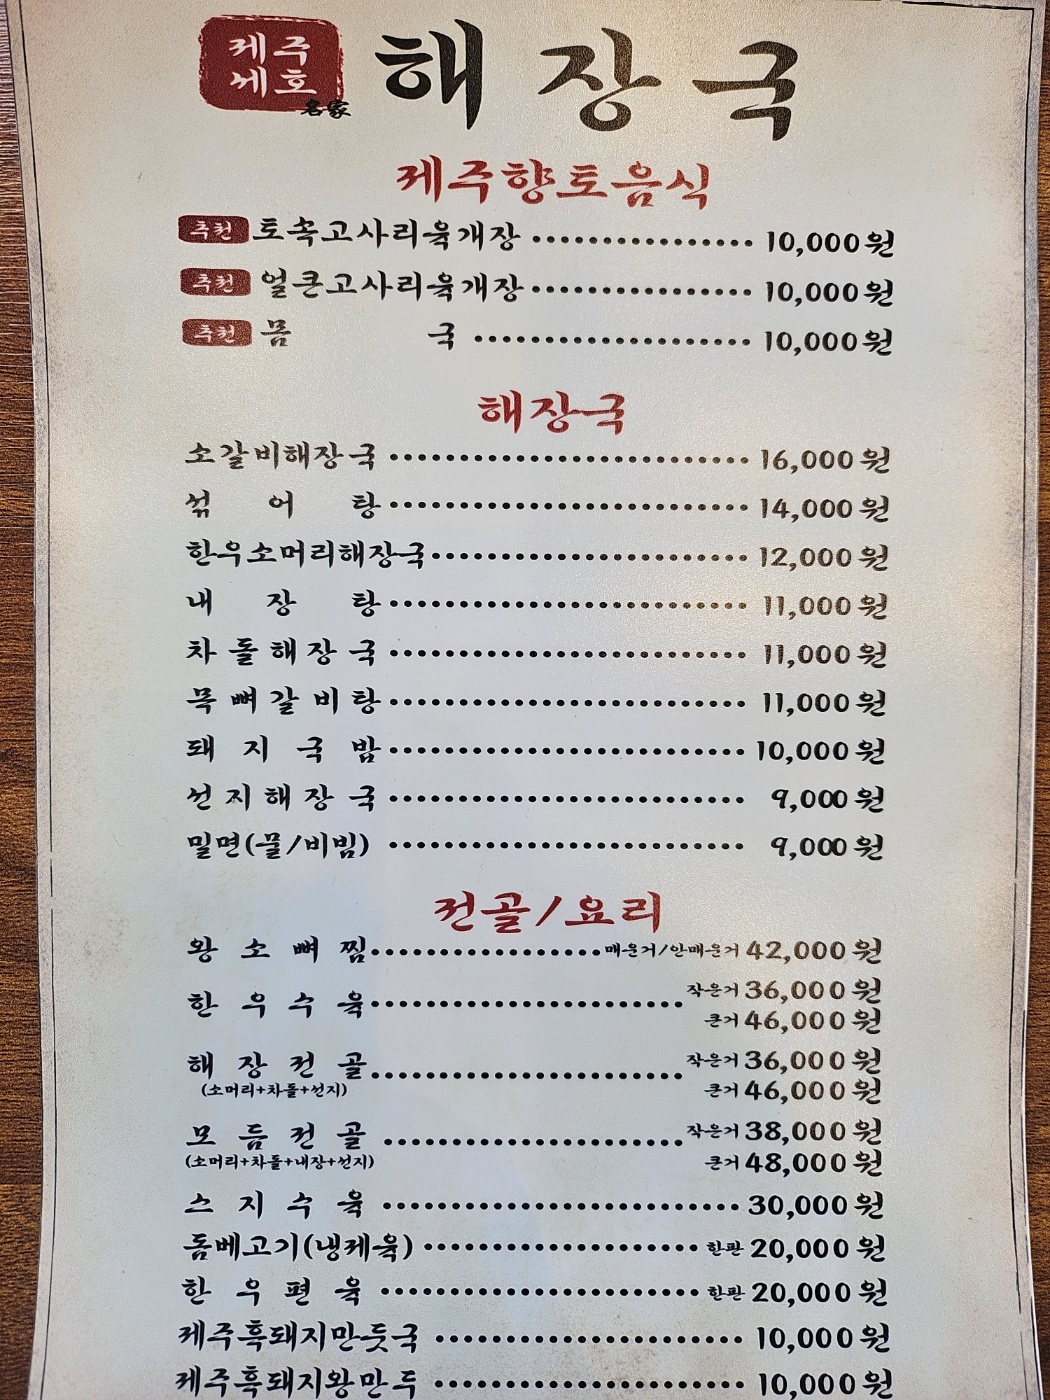 제주
세호
名家
해장국
제주향토음식
추천 토속고사리육개장 ················ 10,000원
추천 얼큰고사리육개장 ················ 10,000원
추천 몸 국 ···················· 10,000원
해장국
소갈비해장국 ·························· 16,000원
섞 어 탕 ·························· 14,000원
한우소머리해장국 ······················· 12,000원
내 장 탕 ·························· 11,000원
차 돌 해 장 국 ·························· 11,000원
목 뼈 갈 비 탕 ·························· 11,000원
돼 지 국 밥 ·························· 10,000원
선 지 해 장 국 ·························· 9,000원
밀면(물/비빔) ·························· 9,000원
전골/요리
왕 소 뼈 찜 ················· 매운거/안매운거 42,000원
한 우 수 육 ······················· 작은거 36,000원
큰거 46,000원
해 장 전 골 ······················· 작은거 36,000원
(소머리+차돌+선지) 큰거 46,000원
모 듬 전 골 ······················ 작은거 38,000원
(소머리+차돌+내장+선지) 큰거 48,000원
스 지 수 육 ·························· 30,000원
돔베고기(냉제육) ···················· 한판 20,000원
한 우 편 육 ······················· 한판 20,000원
제주흑돼지만둣국 ······················ 10,000원
제주흑돼지왕만두 ······················ 10,000원